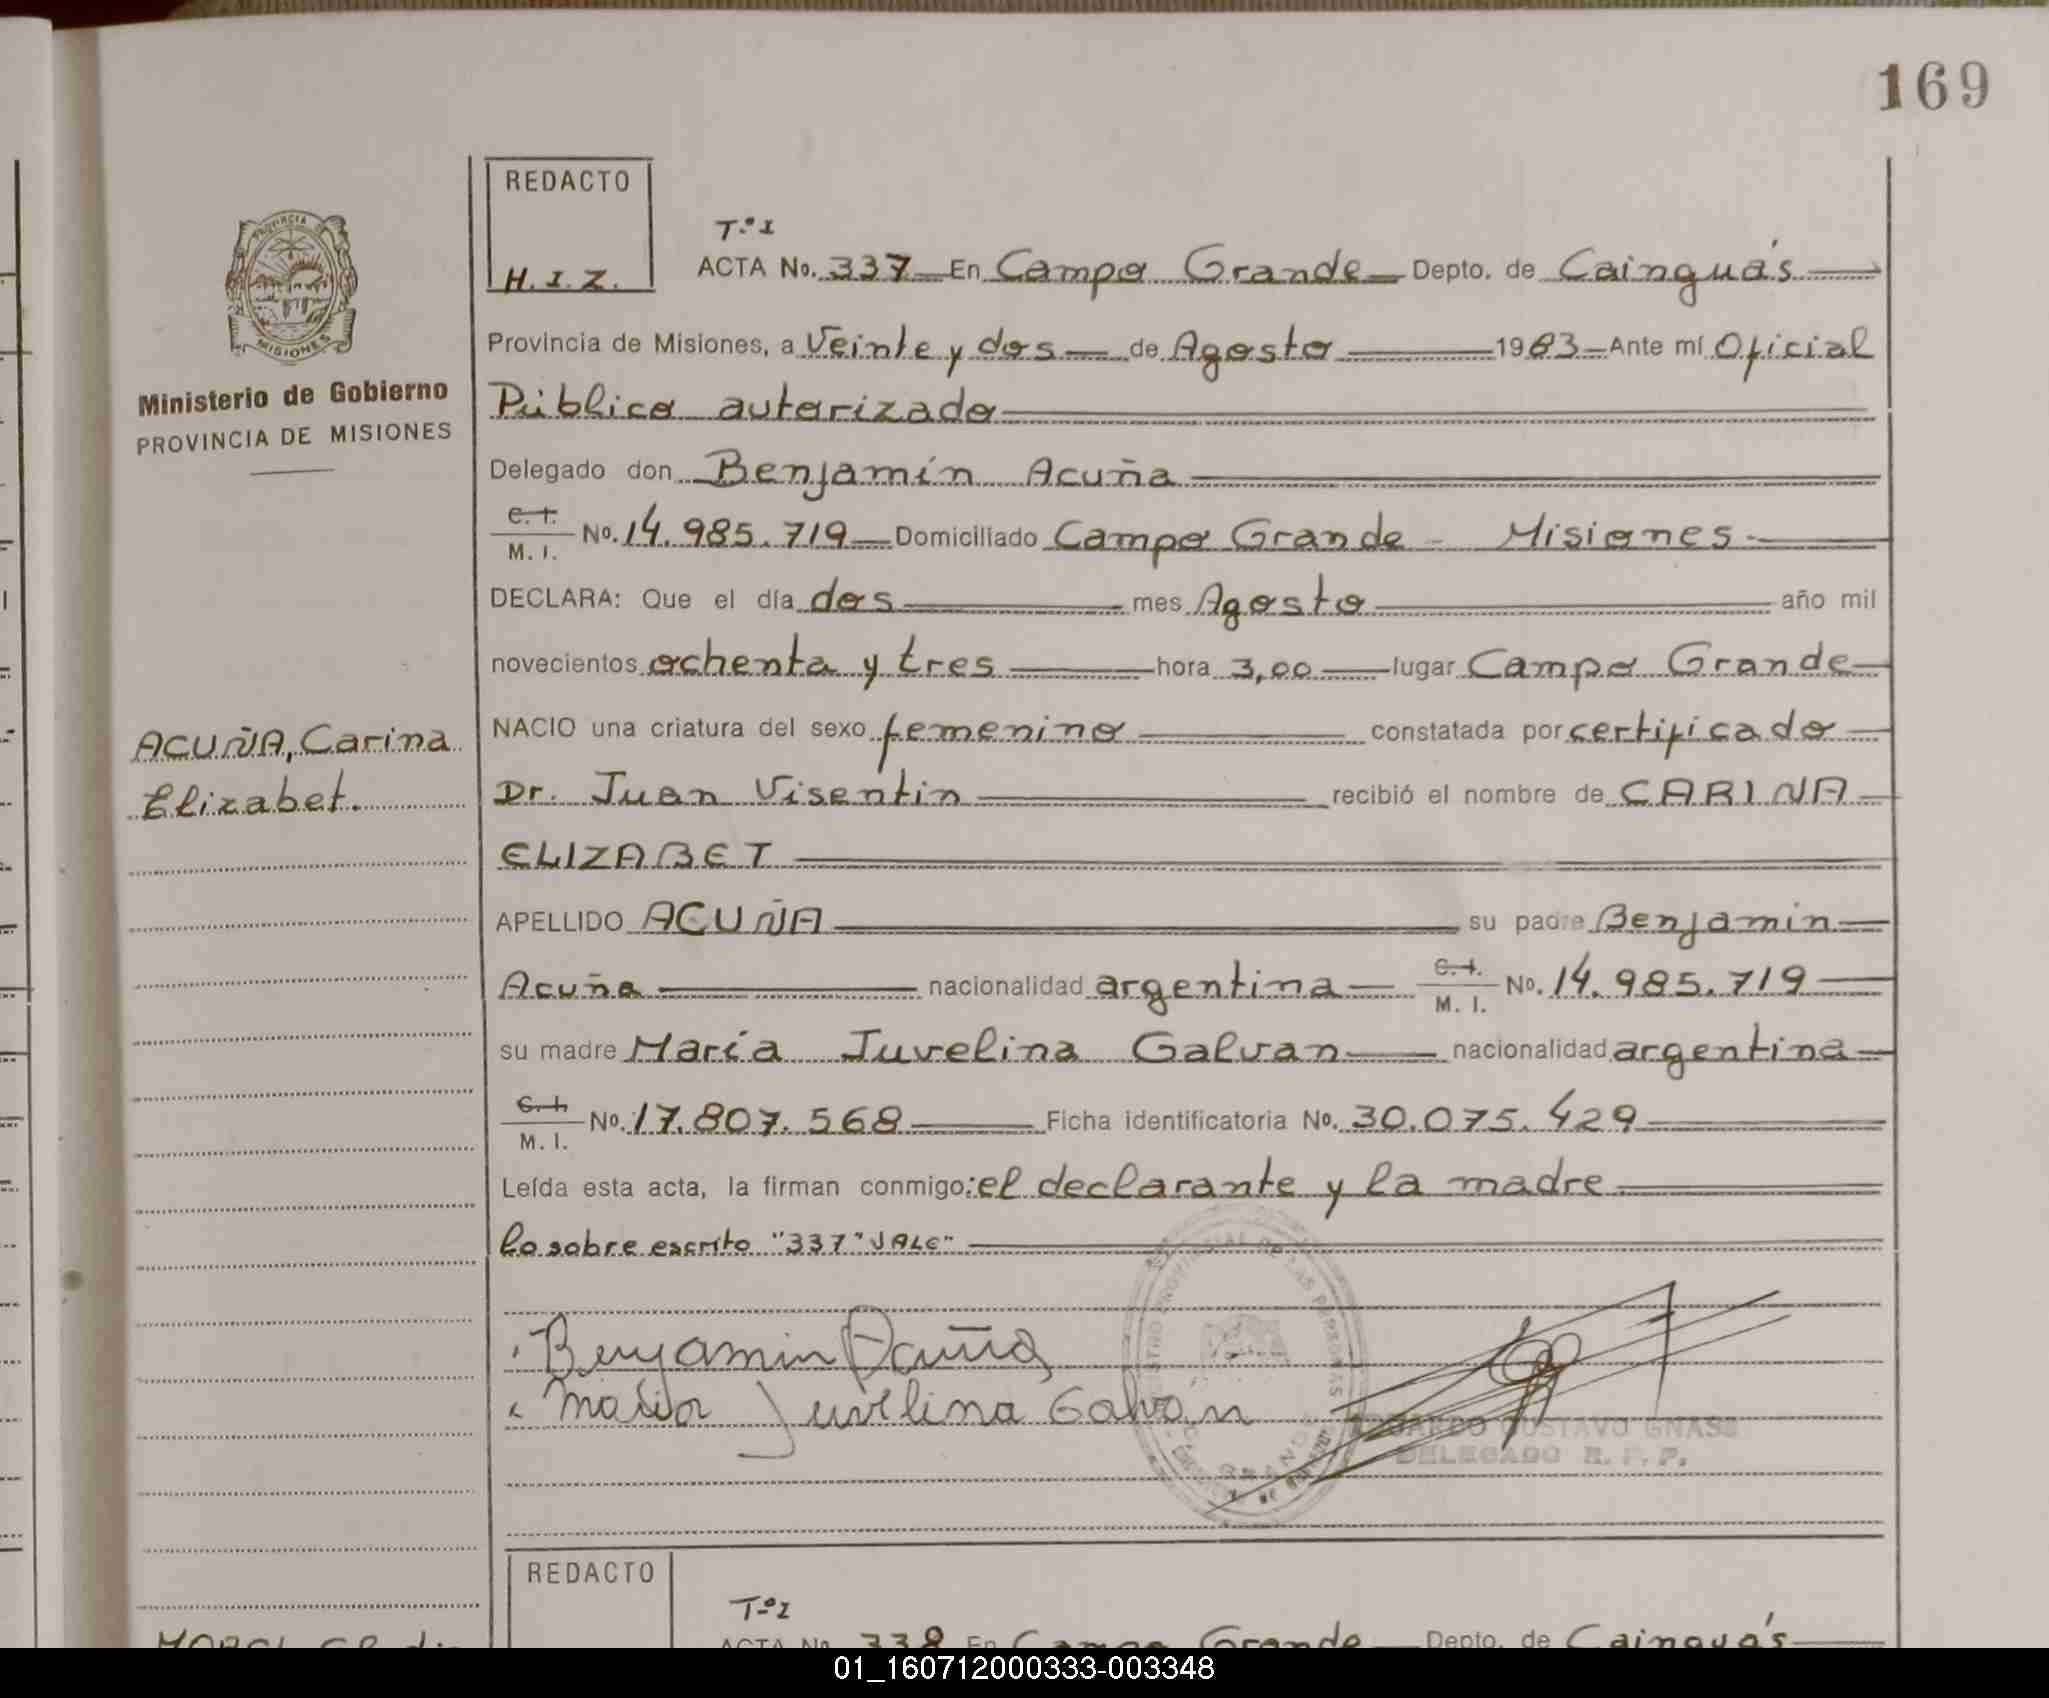 169
REDACTO
H. I. Z.
T.º I
ACTA No. 337 En Campo Grande Depto. de Cainguás
Provincia de Misiones, a Veinte y dos de Agosto 1983 Ante mí Oficial
Público autorizado
Delegado don Benjamín Acuña
C. I.
M. I. No. 14.985.719 Domiciliado Campo Grande - Misiones.
DECLARA: Que el día dos mes Agosto año mil
novecientos ochenta y tres hora 3,00 lugar Campo Grande
NACIO una criatura del sexo femenino constatada por certificado
Dr. Juan Visentin recibió el nombre de CARINA
ELIZABET
APELLIDO ACUÑA su padre Benjamin
Acuña nacionalidad argentina C. I.
M. I. No. 14.985.719
su madre María Juvelina Galvan nacionalidad argentina
C. I.
M. I. No. 17.807.568 Ficha identificatoria No. 30.075.429
Leída esta acta, la firman conmigo: el declarante y la madre
lo sobre escrito "337" VALE"
Benjamin Acuña
Maria Juvelina Galvan
GUSTAVO GNASS
DELEGADO R. P. P.
PROVINCIA
MISIONES
Ministerio de Gobierno
PROVINCIA DE MISIONES
ACUÑA, Carina
Elizabet.
REDACTO
T.º I
ACTA No. 338 En Campo Grande Depto. de Cainguás
01_160712000333-003348